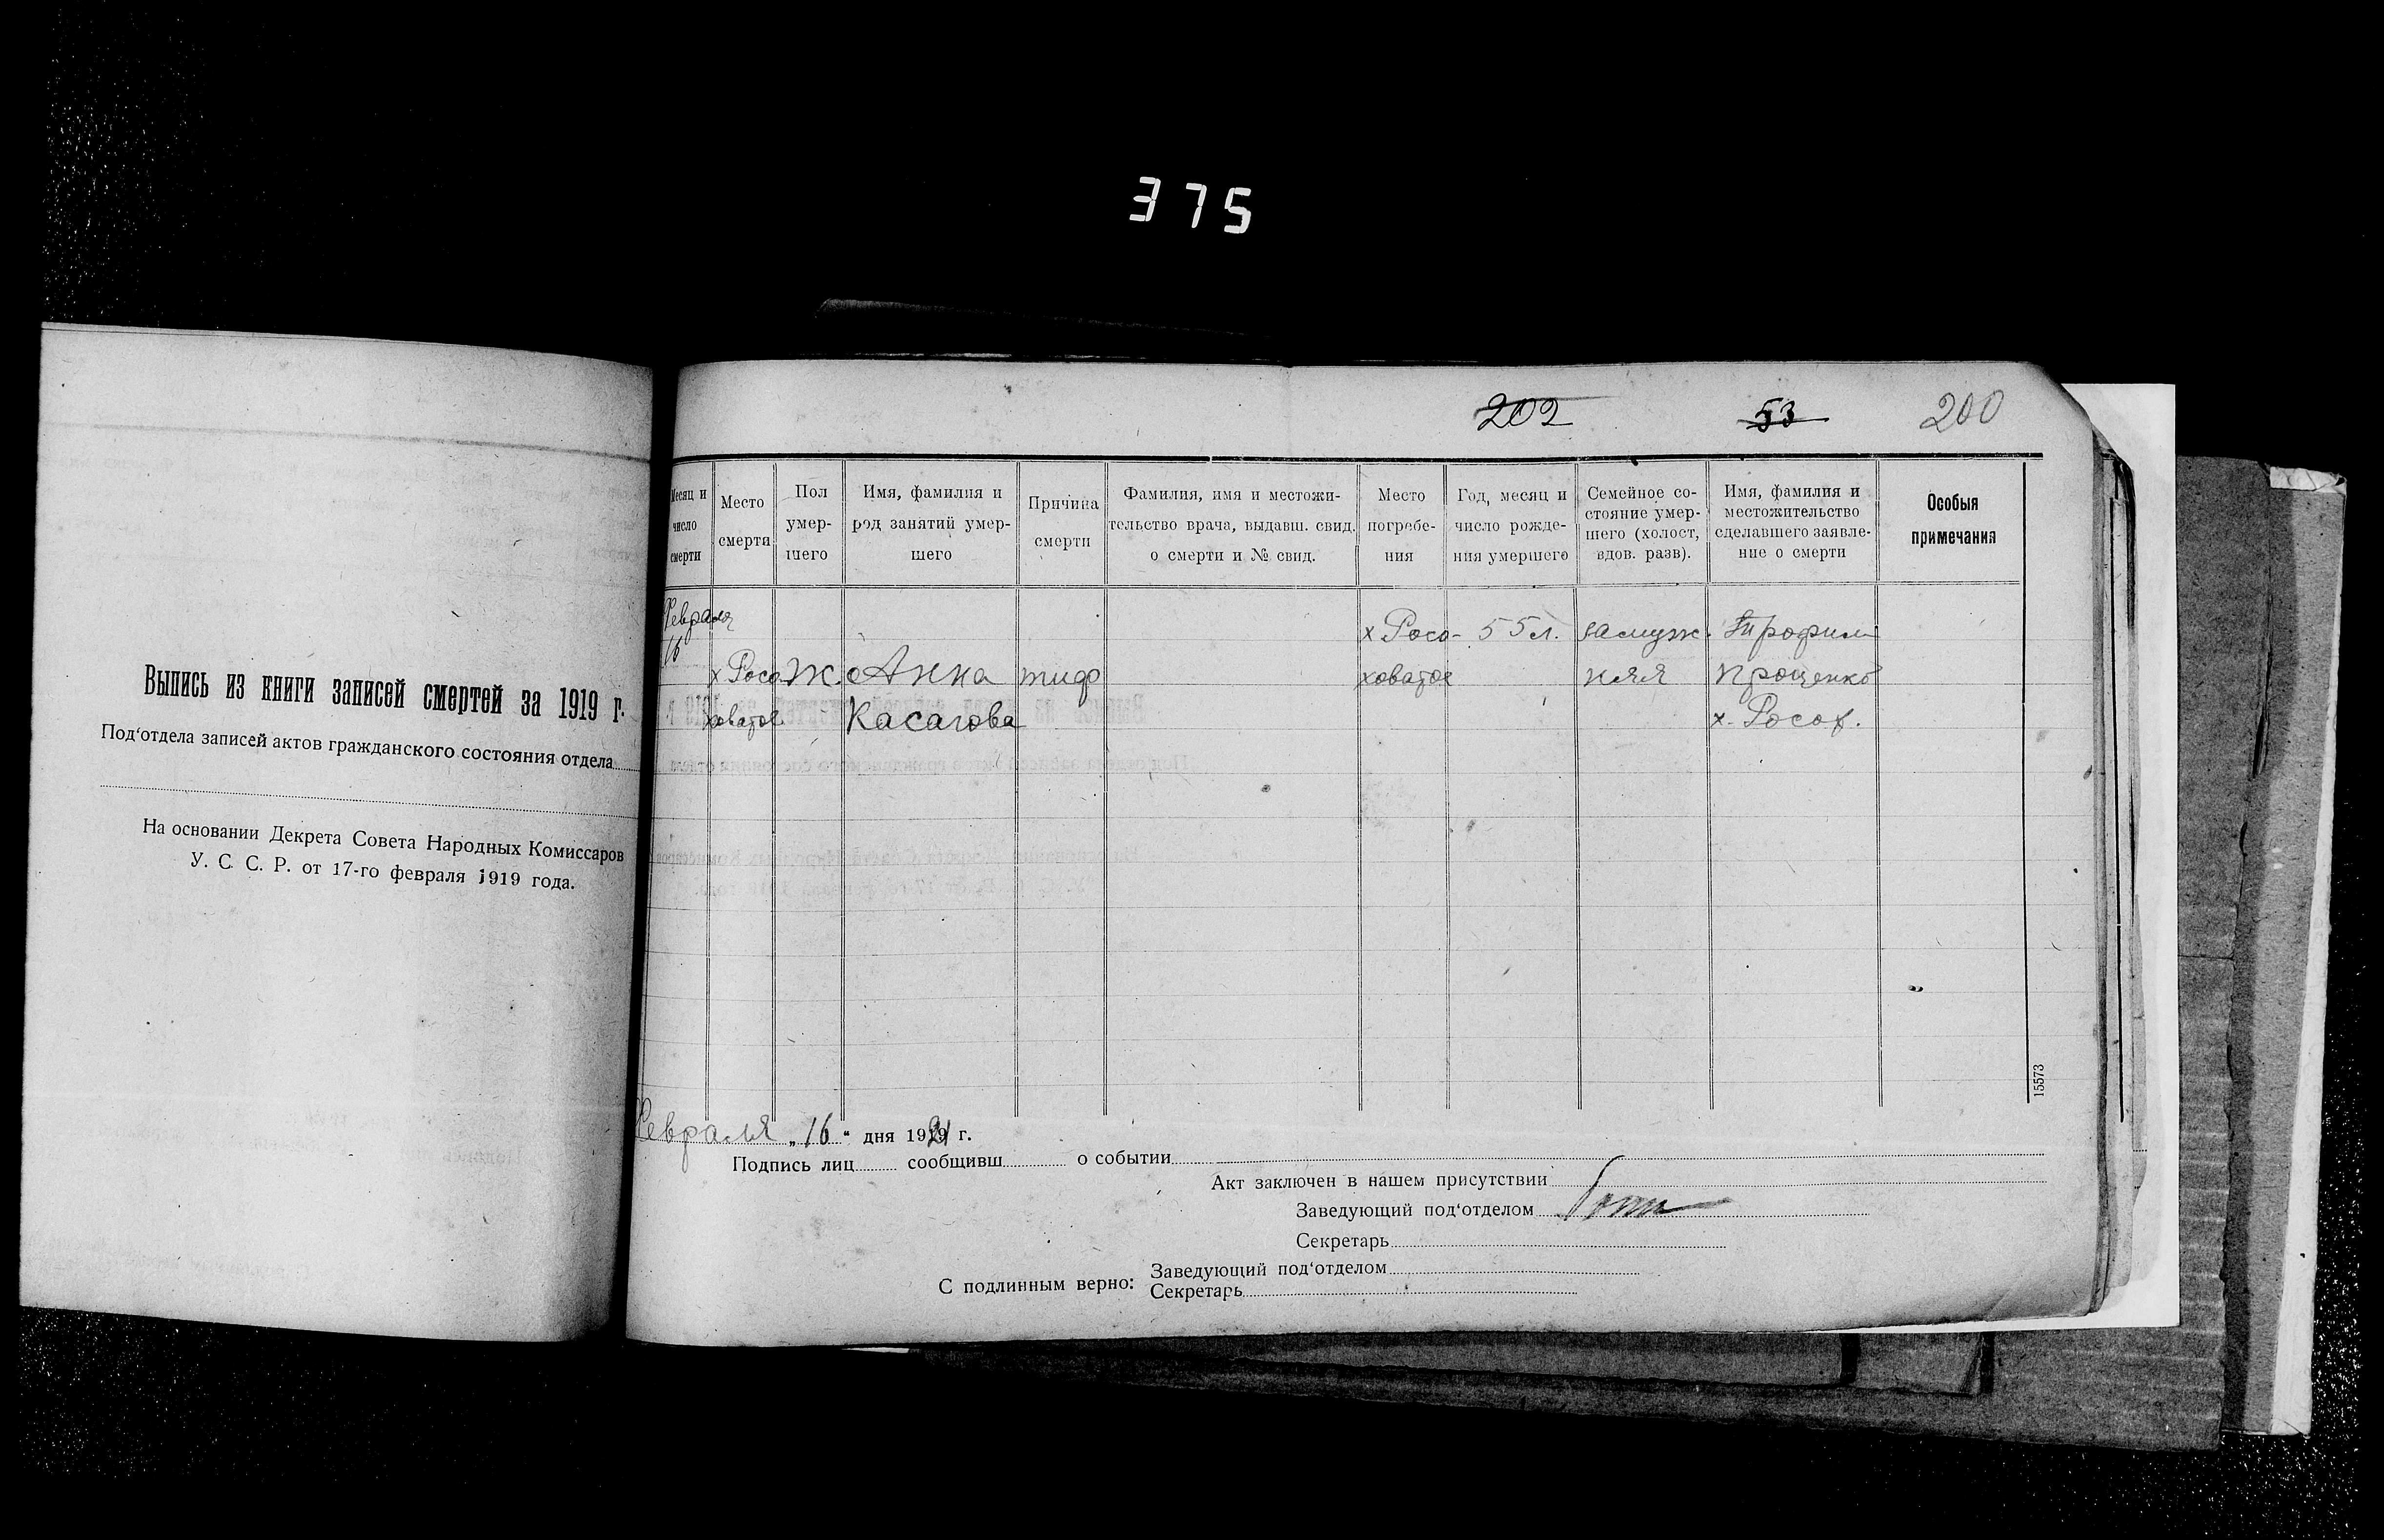 375
Выпись из книги записей смертей за 1919 г.
Под‘отдела записей актов гражданского состояния отдела
На основании Декрета Совета Народных Комиссаров
У. С. С. Р. от 17-го февраля 1919 года.
202 53 200
Месяц и число смерти
Место смерти
Пол умер-
шего
Имя, фамилия и
род занятий умер-
шего
Причина
смерти
Фамилия, имя и местожи-
тельство врача, выдавш. свид.
о смерти и № свид.
Место
погребе-
ния
Год, месяц и
число рожде-
ния умершего
Семейное со-
стояние умер-
шего (холост,
вдов. разв).
Имя, фамилия и
местожительство
сделавшего заявле-
ние о смерти
Особыя
примечания
Февраля
16
х Росо
ховатое
Ж.
Анна
Касагова
тиф
х Росо-
ховатое
55 л.
замуж.
няя
Трофим
Проценко
х. Росох.
15573
Февраля „16“ дня 1921 г.
Подпись лиц сообщивш о событии
Акт заключен в нашем присутствии
Заведующий под‘отделом
Секретарь
С подлинным верно: Заведующий под‘отделом
Секретарь